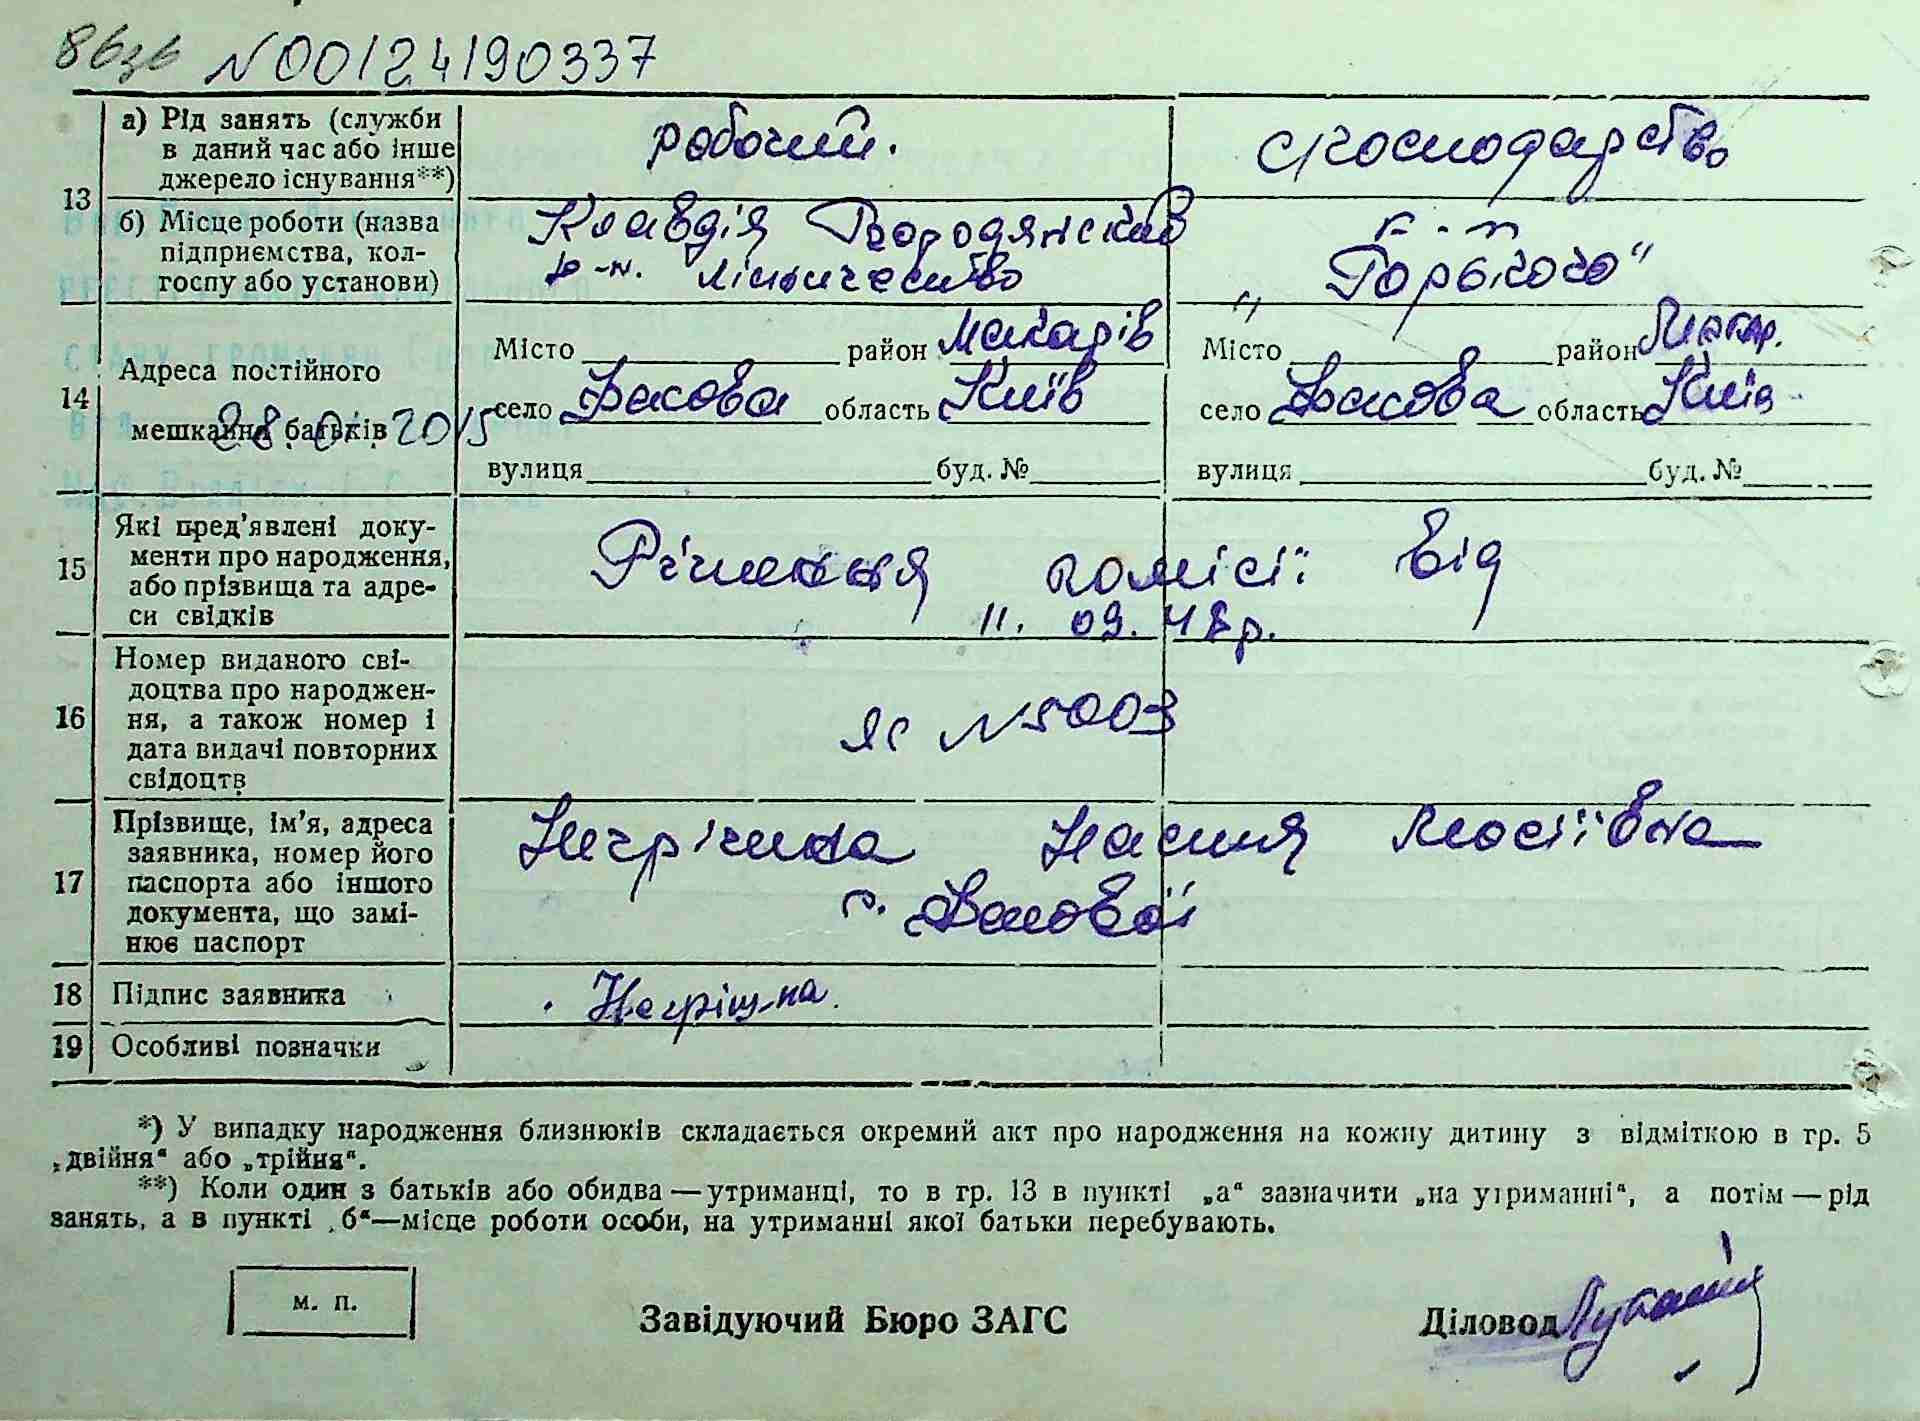 86зв N00124190337
13
а) Рід занять (служби в даний час або інше джерело існування**)
робочий.
с/господарство
б) Місце роботи (назва підприємства, колгоспу або установи)
Клавдія Бородянський
р-н. лісничество
к-п
„Горького“
14
Адреса постійного мешкання батьків
28.01.2015
Місто район Макарів
село Фасова область Київ
вулиця буд. №
Місто район Макар.
село Фасова область Київ
вулиця буд. №
15
Які пред’явлені документи про народження, або прізвища та адреси свідків
Рішення комісії від
11. 09. 48 р.
16
Номер виданого свідоцтва про народження, а також номер і дата видачі повторних свідоцтв
ЯС N 5003
17
Прізвище, ім’я, адреса заявника, номер його паспорта або іншого документа, що замінює паспорт
Негрішна Настя Мосіївна
с. Фасової
18
Підпис заявника
Негрішна.
19
Особливі позначки
*) У випадку народження близнюків складається окремий акт про народження на кожну дитину з відміткою в гр. 5
„двійня“ або „трійня“.
**) Коли один з батьків або обидва — утриманці, то в гр. 13 в пункті „а“ зазначити „на утриманні“, а потім — рід
занять, а в пункті „б“—місце роботи особи, на утриманні якої батьки перебувають.
м. п.
Завідуючий Бюро ЗАГС
Діловод